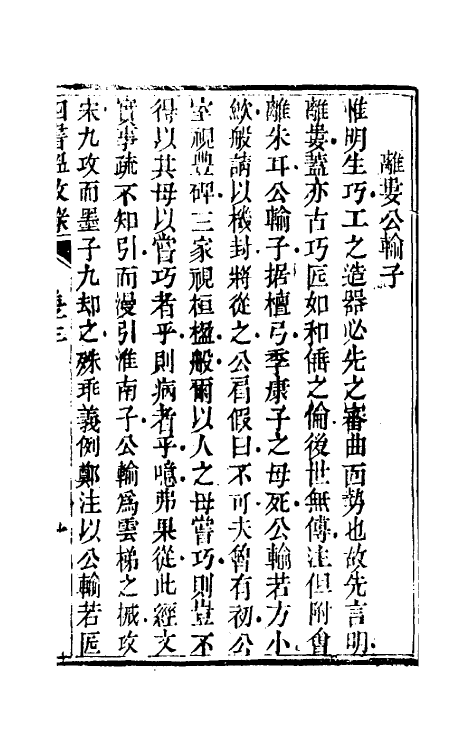 離婁公輸子
惟明生巧工之造器必先之審曲面勢也故先言明
離婁蓋亦古巧匠如和倕之倫後世無傳注但附會
離朱耳公輸子据檀弓季康子之母死公輸若方小
斂般請以機封將從之公肩假曰不可夫魯有初公
室視豐碑三家視桓楹般爾以人之母嘗巧則豈不
得以其母以嘗巧者乎則病者乎噫弗果從此經文
實事疏不知引而漫引淮南子公輸為雲梯之械攻
宋九攻而墨子九却之殊乖義例鄭注以公輸若匠
四書溫故錄
卷三